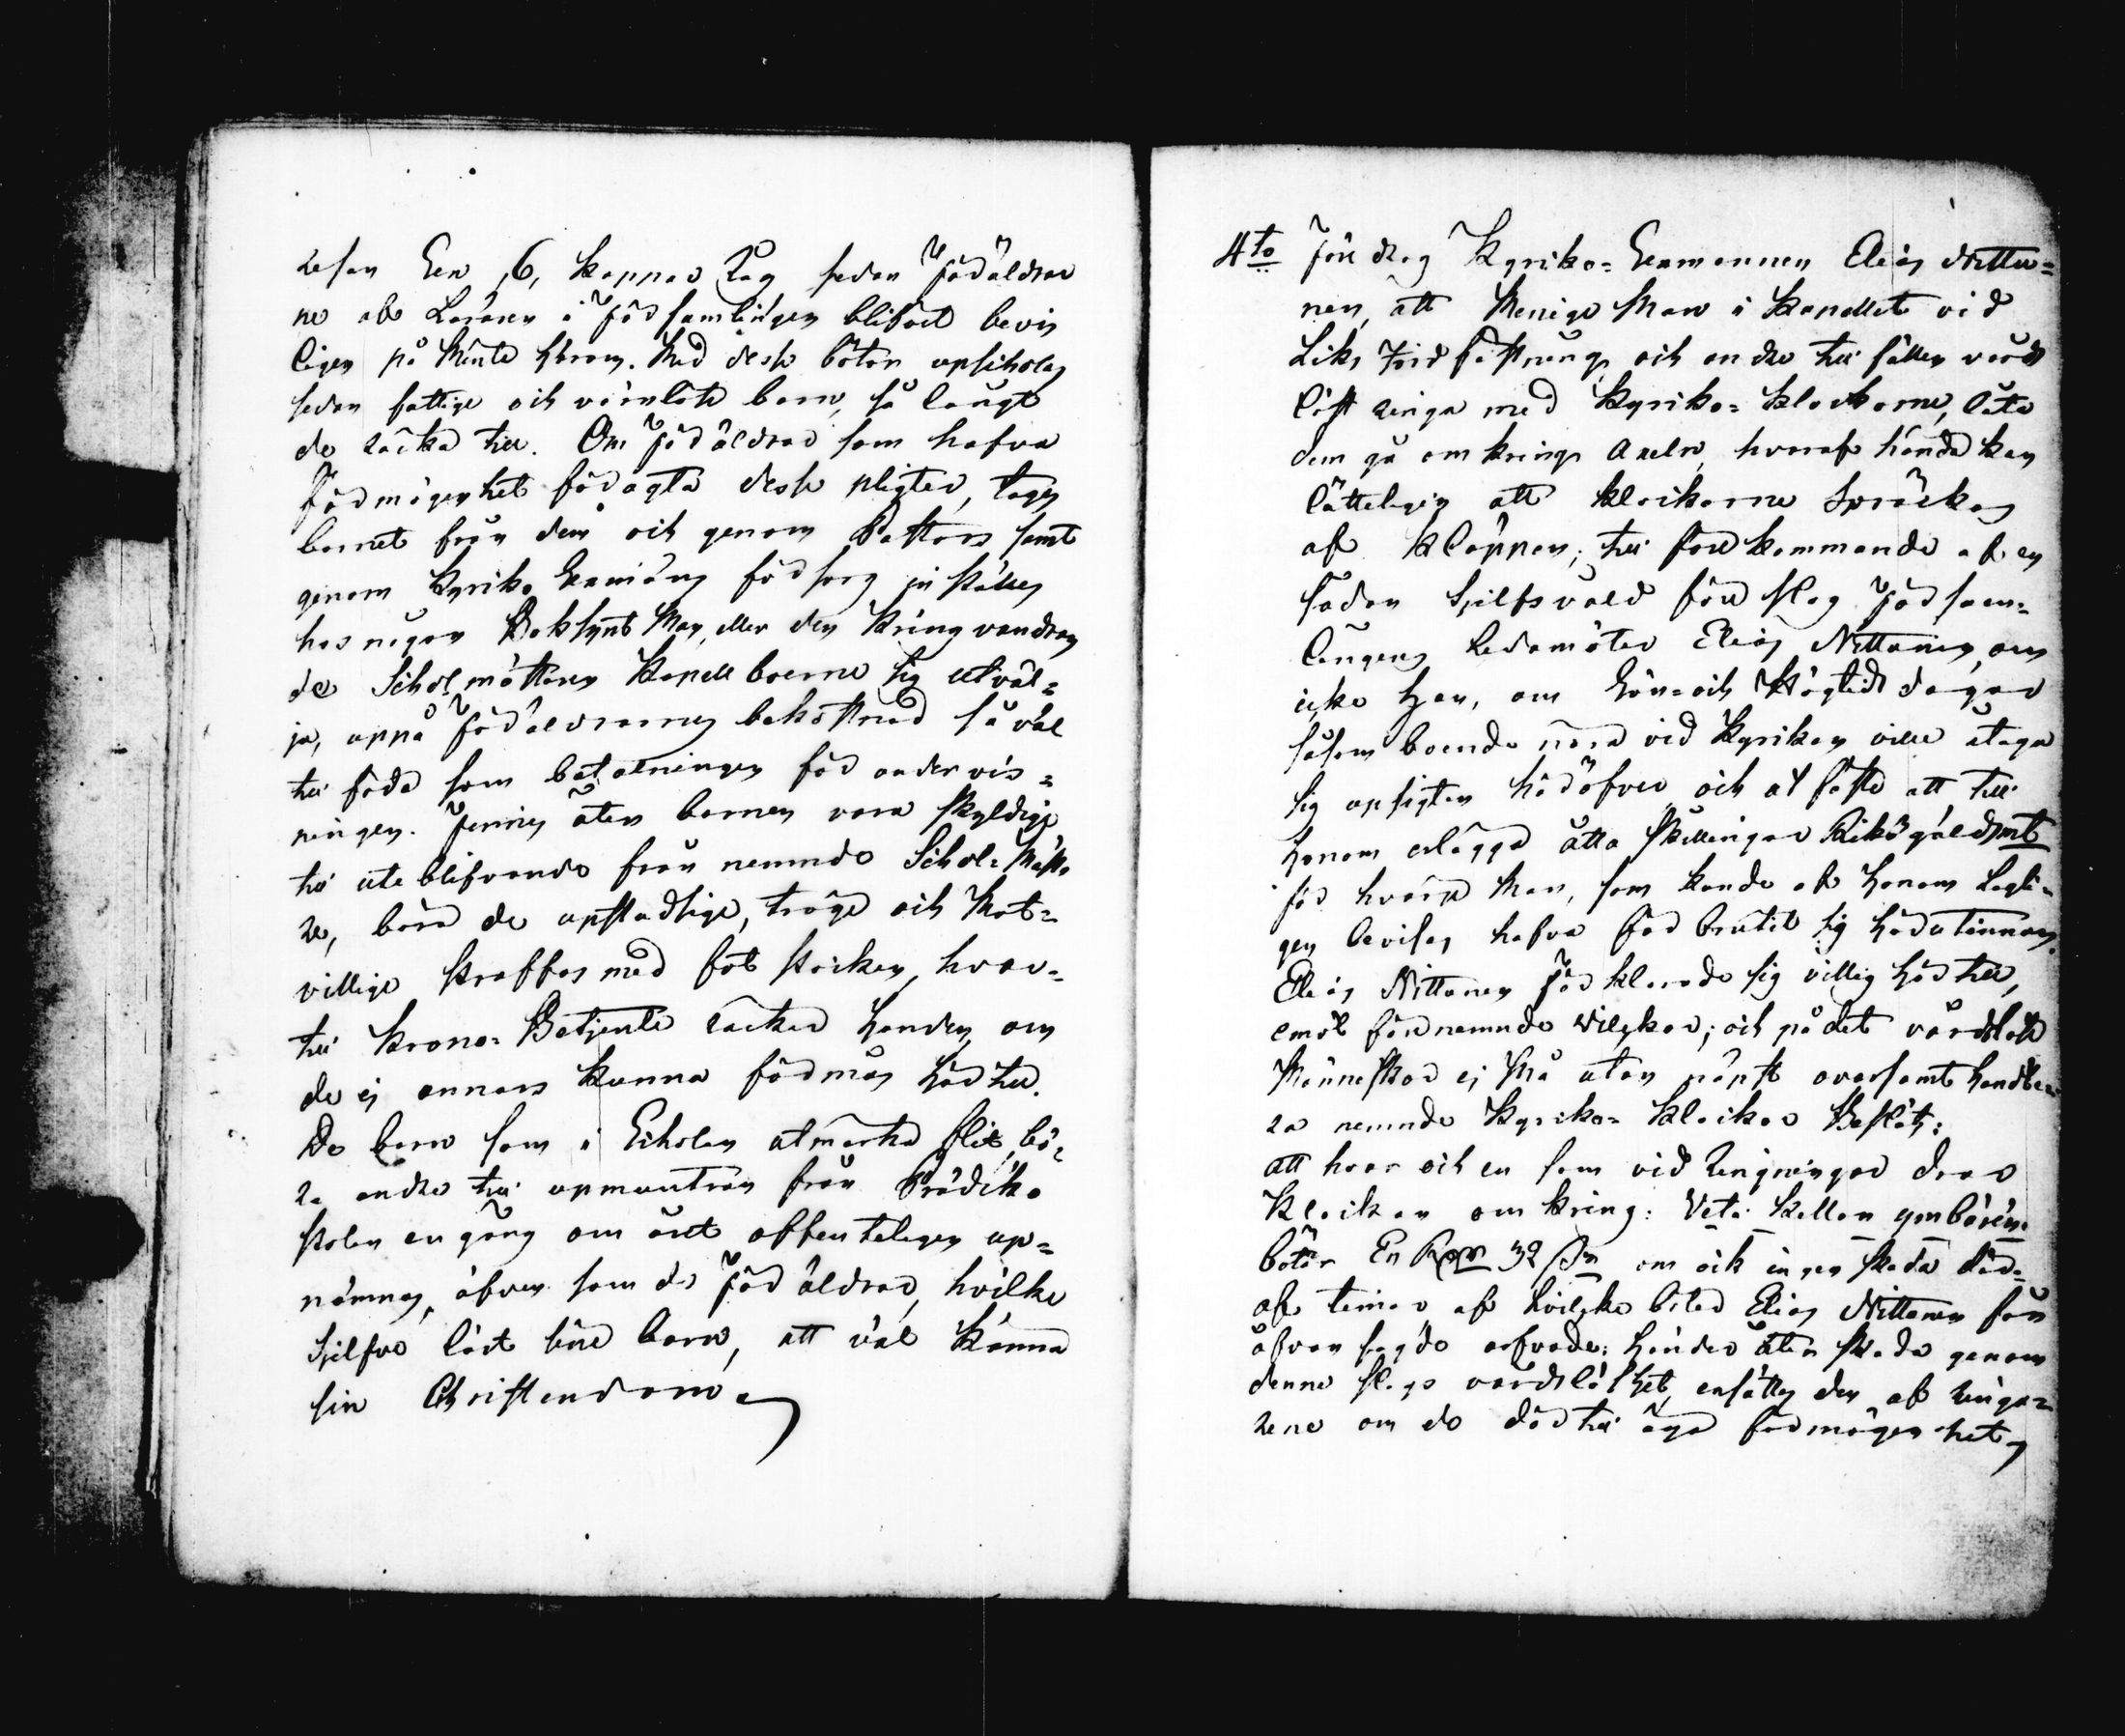 resan Een ,6, kappas Råg sedan Föräldrar
ne af Läraren i Församlingen blifvit bevis
ligen på Minte härom. Med desse böter upscholas
sedan fattige och värnlöse barn, så långt
de räcka till. Om Föräldrar som hafva
Förmögenhet föragta desse pligter, tages
barnet från dem och genom Pastors samt
genom Kyrko Sexmäns försorg in ställes
hos någon Boksynt Man, eller den kringvandran
de Scholmästaren Kapellboerne sig utväl=
ja, uppå Föräldrarnes bekostnad så väl
till föda som betalningen för undervis=
ningen. Finnes åter barnen vara skyldige
till uteblifvande från nemnde Schol=Mästa
re, böra de upstudsige, tröge och Mot=
villige straffas med fot stocken, hvar=
till Krono=Betjente räcker handen, om
de ej annars kunna förmås härtill.
De barn som i Scholan utmärka flit, bö=
ra andre till upmuntran från Prädiko
stolen en gång om året offenteligen up=
nämnas, äfven som de Föräldrar, hvilka
Sjelfve lärt sine barn, att väl känna
sin Christendom
4to Före drog Kyrko=Sexmannen Elias Nitta=
nen, att Menige Man i Kapellet vid
Liks Jordfästning och andre tillfällen vårds
löst ringa med Kyrko=Klockorne, låta
dem gå omkring Axeln, hvaraf hända kan
lätteligen att klockorne Spräckas
af Kläppen; till förekommande af en
sådan Sjelfsvåld föreslog Försam=
lingens Ledamöter Elias Nittanen, om
icke han, om Sön= och Högtids dagar
såsom boende nära vid Kyrkan ville åtaga
sig upsigten häröfver och utfäste att till
honom erlägga åtta skillingar Riksgälds mt
för hvarje Man, som kunde af honom Lagli=
gen bevisas hafva förbrutit sig härutinnan.
Elias Nittanen Förklarade sig villig härtill,
emot förenemnde vilkor; och på det vårdslöse
Människor ej Må utan näpst ovarsamt handte
ra nemnde Kyrko=Klockor Beslöts:
att hvar och en som vid Ringningar drar
Klockan omkring: Vete skallen
böter En Rdr 32 sk om ock ingen skada där=
af timar, af hvilke böter Elias Nittanen får
åfvan sagde arfvode; händer åter skada genom
denne slags vårdslöshet, ersättes den af ringa=
rene om de därtill äga förmögenhet,